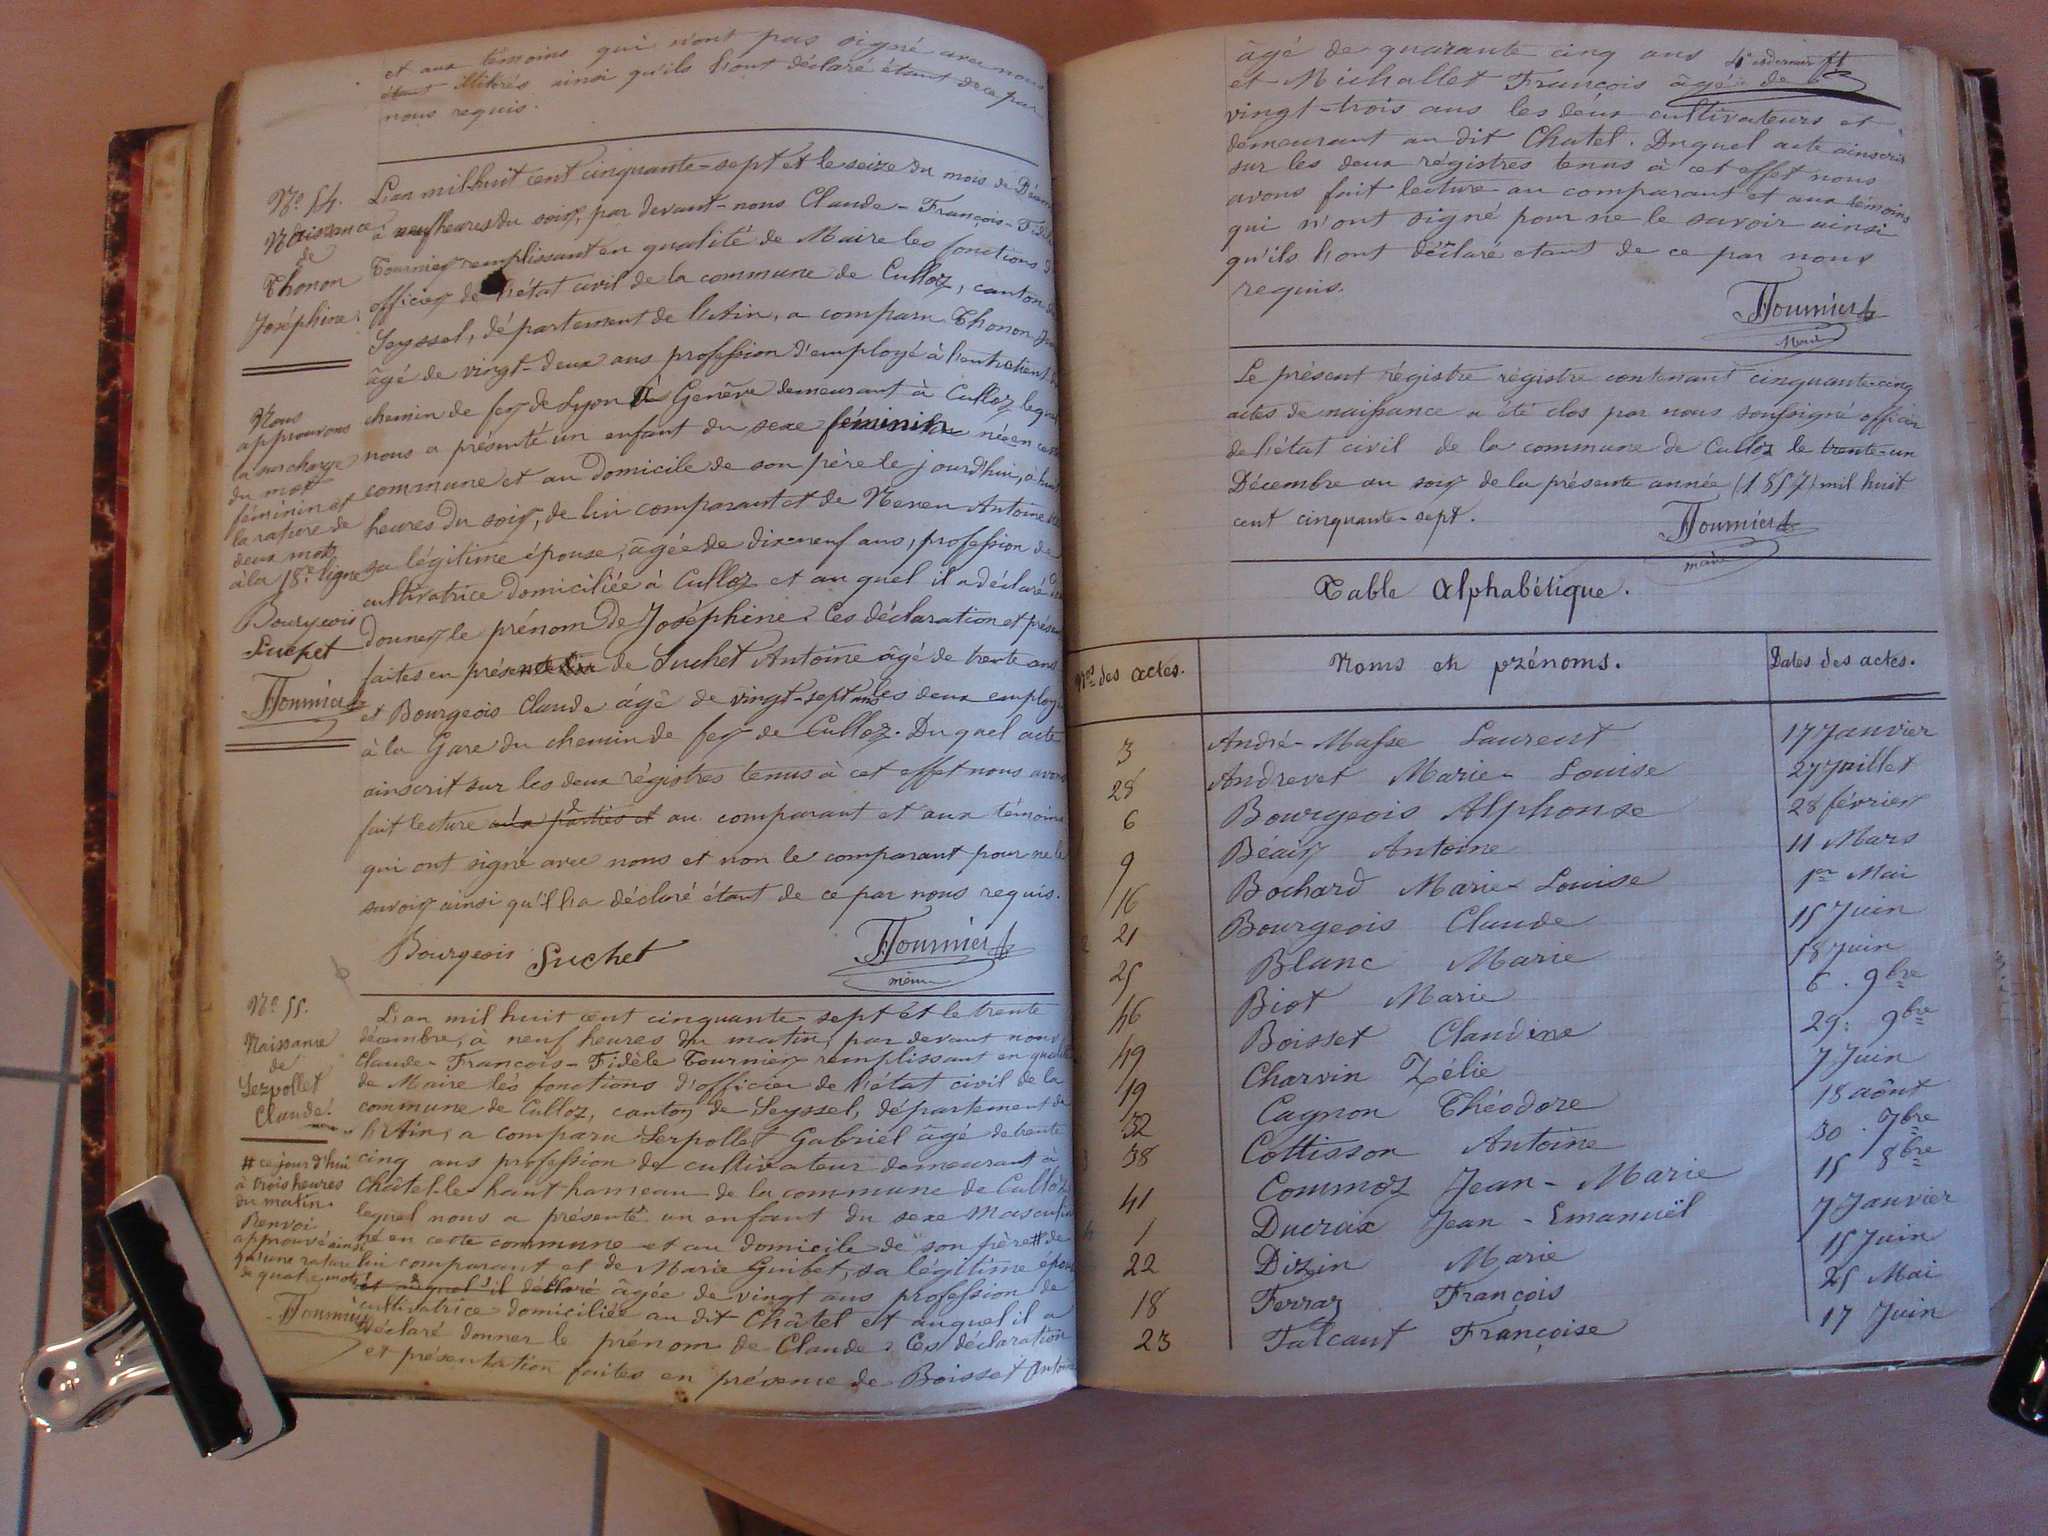 et aux témoins qui n'ont pas signé avec nous
étant illitérés ainsi qu'ils l'ont déclaré étant de ce par
nous requis.
N° 54.
Naissance
de
Thonon
Joséphine.
Nous
approuvons
la surcharge
du mot
féminin et
la rature de
deux mots
à la 18e ligne
Bourgeois
Suchet
Tournier
L'an mil-huit cent cinquante-sept et le seize du mois de
à neuf heures du soir, par devant-nous Claude-François-
Tournier remplissant en qualité de Maire les fonctions
officier de l'état civil de la commune de Culloz, canton de
Seyssel, département de l'Ain, a comparu Thonon
âgé de vingt-deux ans profession d'employé à l'entretien
chemin de fer de Lyon à Genève demeurant à Culloz lequel
nous a présenté un enfant du sexe féminin née en cette
commune et au domicile de son père le jourd'hui, à huit
heures du soir, de lui comparant et de Neveu Antoine
sa légitime épouse, âgée de dix-neuf ans, profession de
cultivatrice domiciliée à Culloz et auquel il a déclaré
donner le prénom de Joséphine. Ces déclaration et
faites en présence de Suchet Antoine âgé de trente ans
et Bourgeois Claude âgé de vingt-sept ans les deux
à la Gare du chemin de fer de Culloz. Duquel acte
ainscrit sur les deux régistres tenus à cet effet nous avons
fait lecture aux parties et au comparant et aux témoins
qui ont signé avec nous et non le comparant pour ne le
savoir ainsi qu'il l'a déclaré étant de ce par nous requis.
Bourgeois Suchet Tournier
N° 55.
Naissance
de
Serpollet
Claude.
# ce jourd'hui
à trois heures
du matin.
Renvoi
approuvé ainsi
qu'une rature
de quatre mots
Tournier
L'an mil huit cent cinquante-sept et le trente
décembre, à neuf heures du matin, par devant nous
Claude-François-Fidèle Tournier remplissant en qualité
de Maire les fonctions d'officier de l'état civil de la
commune de Culloz, canton de Seyssel, département de
l'Ain, a comparu Serpollet Gabriel âgé de trente
cinq ans profession de cultivateur demeurant à
Châtel-le-haut hameau de la commune de Culloz
lequel nous a présenté un enfant du sexe masculin
né en cette commune et au domicile de son père # de
lui comparant et de Marie Guibet, sa légitime épouse
et auquel il déclaré âgée de vingt ans profession de
cultivatrice domiciliée au dit Châtel et auquel il a
déclaré donner le prénom de Claude. Ces déclaration
et présentation faites en présence de Boisset Antoine
âgé de quarante cinq ans
et Michallet François âgé de
vingt-trois ans les deux cultivateurs et
demeurant au dit Chatel. Duquel acte ainscrit
sur les deux régistres tenus à cet effet nous
avons fait lecture au comparant et aux témoins
qui n'ont signé pour ne le savoir ainsi
qu'ils l'ont déclaré étant de ce par nous
requis.
Tournier
Le présent régistre régistre contenant cinquante-cinq
actes de naissance a été clos par nous soussigné officier
de l'état civil de la commune de Culloz le trente-un
Décembre au soir de la présente année (1857) mil huit
cent cinquante-sept.
Tournier
maire
Table Alphabétique.
Nos des actes. Noms et prénoms. Dates des actes.
3 André-Masse Laurent 17 Janvier
28 Andrevet Marie-Louise 27 Juillet
6 Bourgeois Alphonse 28 février
9 Béair Antoine 11 Mars
16 Bochard Marie-Louise 1er Mai
21 Bourgeois Claude 15 Juin
25 Blanc Marie 18 Juin
46 Biot Marie 6. 9bre
49 Boisset Claudine 29. 9bre
19 Charvin Zélie 7 Juin
32 Cagnon Théodore 18 août
38 Cottisson Antoine 30. 7bre
41 Commoz Jean-Marie 15 8bre
1 Ducroix Jean-Emanuël 7 Janvier
22 Dizin Marie 15 Juin
18 Ferraz François 25 Mai
23 Falcaut Françoise 17 Juin